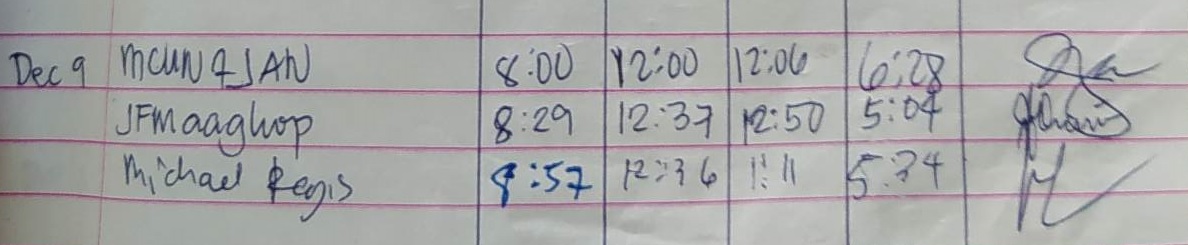 Dec 9 MCUNQJAN 8:00 12:00 12:06 6:28
JFMaaghop 8:29 12:37 12:50 5:04
Michael Regis 8:57 12:36 1:11 5:34